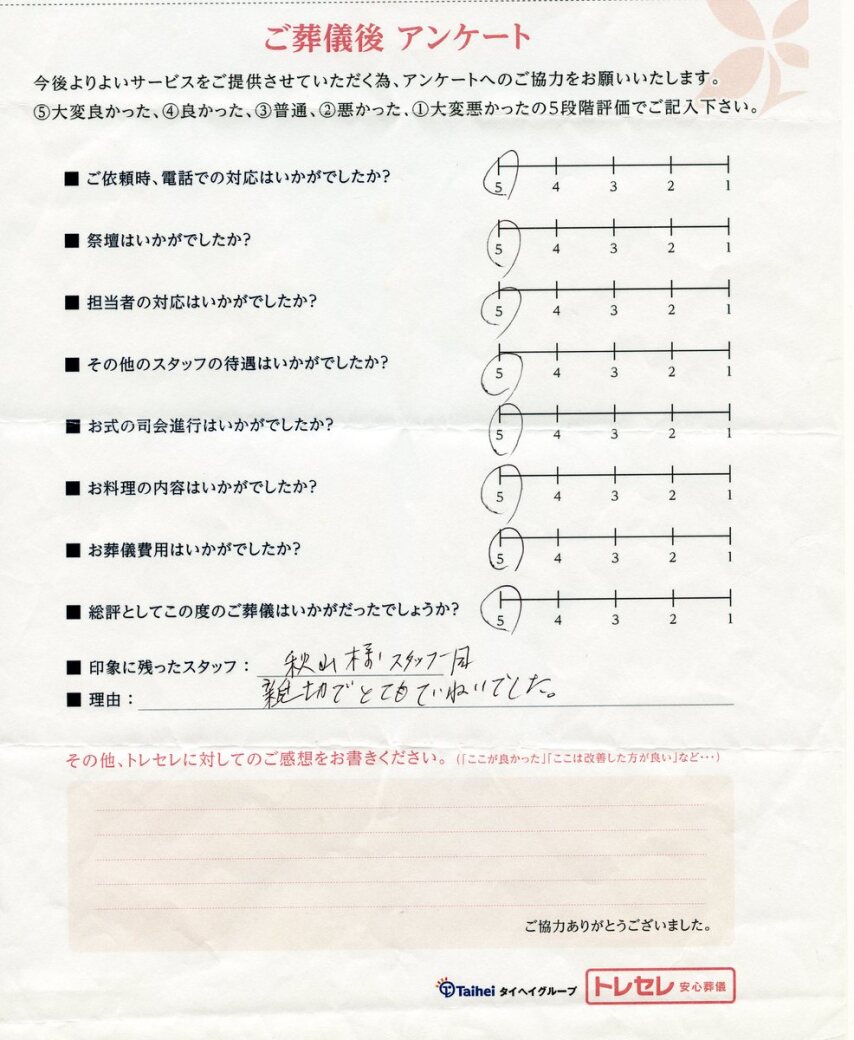 ご葬儀後 アンケート
今後よりよいサービスをご提供させていただく為、アンケートへのご協力をお願いいたします。
⑤大変良かった、④良かった、③普通、②悪かった、①大変悪かったの5段階評価でご記入下さい。
■ ご依頼時、電話での対応はいかがでしたか?
5 4 3 2 1
■ 祭壇はいかがでしたか?
5 4 3 2 1
■ 担当者の対応はいかがでしたか?
5 4 3 2 1
■ その他のスタッフの待遇はいかがでしたか?
5 4 3 2 1
■ お式の司会進行はいかがでしたか?
5 4 3 2 1
■ お料理の内容はいかがでしたか?
5 4 3 2 1
■ お葬儀費用はいかがでしたか?
5 4 3 2 1
■ 総評としてこの度のご葬儀はいかがだったでしょうか?
5 4 3 2 1
■ 印象に残ったスタッフ: 秋山様 スタッフ一同
■ 理由: 親切でとてもていねいでした。
その他、トレセレに対してのご感想をお書きください。(「ここが良かった」「ここは改善した方が良い」など…)
ご協力ありがとうございました。
Taihei タイヘイグループ トレセレ 安心葬儀